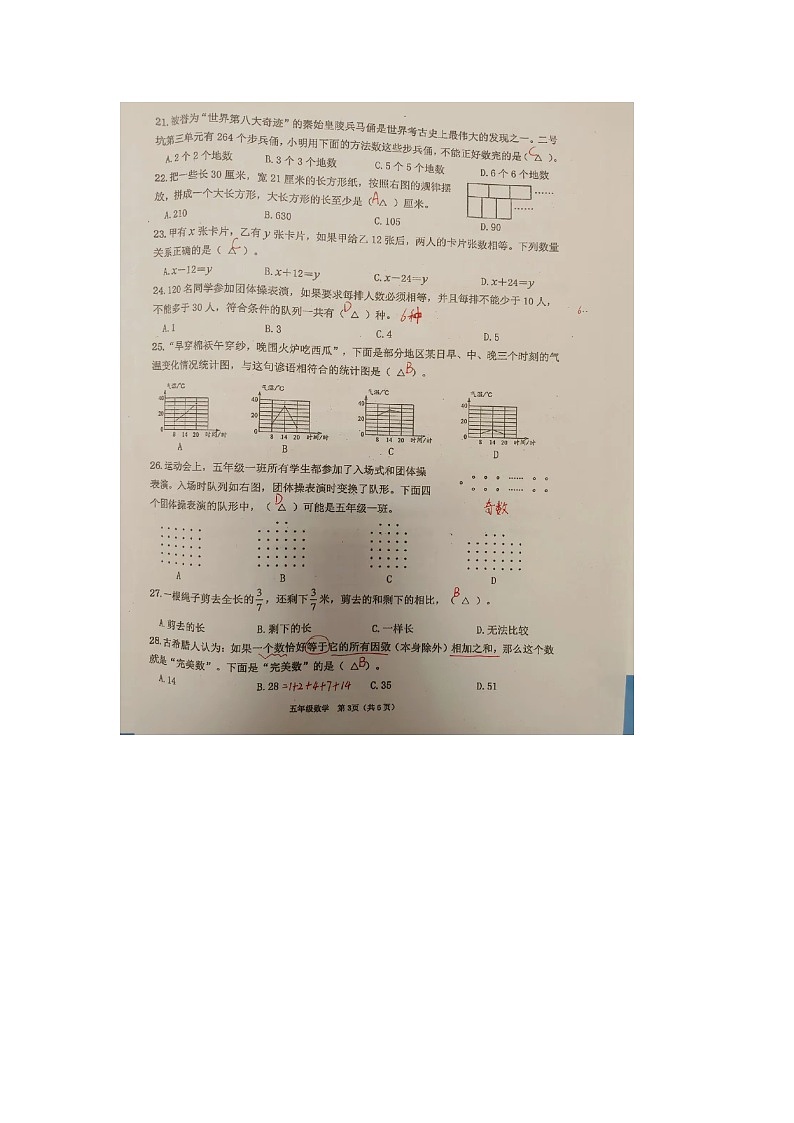 21.被誉为“世界第八大奇迹”的秦始皇陵兵马俑是世界考古史上最伟大的发现之一。二号
坑第三单元有264个步兵俑，小明用下面的方法数这些步兵俑，不能正好数完的是（C △ ）。
A.2个2个地数 B.3个3个地数 C.5个5个地数 D.6个6个地数
22.把一些长30厘米，宽21厘米的长方形纸，按照右图的规律摆
放，拼成一个大长方形，大长方形的长至少是（A △ ）厘米。
A.210 B.630 C.105 D.90
23.甲有x张卡片，乙有y张卡片，如果甲给乙12张后，两人的卡片张数相等。下列数量
关系正确的是（ C ）。
A.x－12＝y B.x＋12＝y C.x－24＝y D.x＋24＝y
24.120名同学参加团体操表演，如果要求每排人数必须相等，并且每排不能少于10人，
不能多于30人，符合条件的队列一共有（D △ ）种。 6种
6..
A.1 B.3 C.4 D.5
25.“早穿棉袄午穿纱，晚围火炉吃西瓜”，下面是部分地区某日早、中、晚三个时刻的气
温变化情况统计图，与这句谚语相符合的统计图是（ △ B）。
气温/℃ 气温/℃ 气温/℃ 气温/℃
40 40 40 40
20 20 20 20
0 0 0 0
8 14 20 时间/时 8 14 20 时间/时 8 14 20 时间/时 8 14 20 时间/时
A B C D
26.运动会上，五年级一班所有学生都参加了入场式和团体操
表演。入场时队列如右图，团体操表演时变换了队形。下面四
个团体操表演的队形中，（ D △ ）可能是五年级一班。
奇数
A B C D
27.一根绳子剪去全长的3/7，还剩下3/7米，剪去的和剩下的相比，（ B △ ）。
A.剪去的长 B.剩下的长 C.一样长 D.无法比较
28.古希腊人认为：如果一个数恰好等于它的所有因数（本身除外）相加之和，那么这个数
就是“完美数”。下面是“完美数”的是（ △B ）。
A.14 B.28 =1+2+4+7+14 C.35 D.51
五年级数学 第3页（共6页）